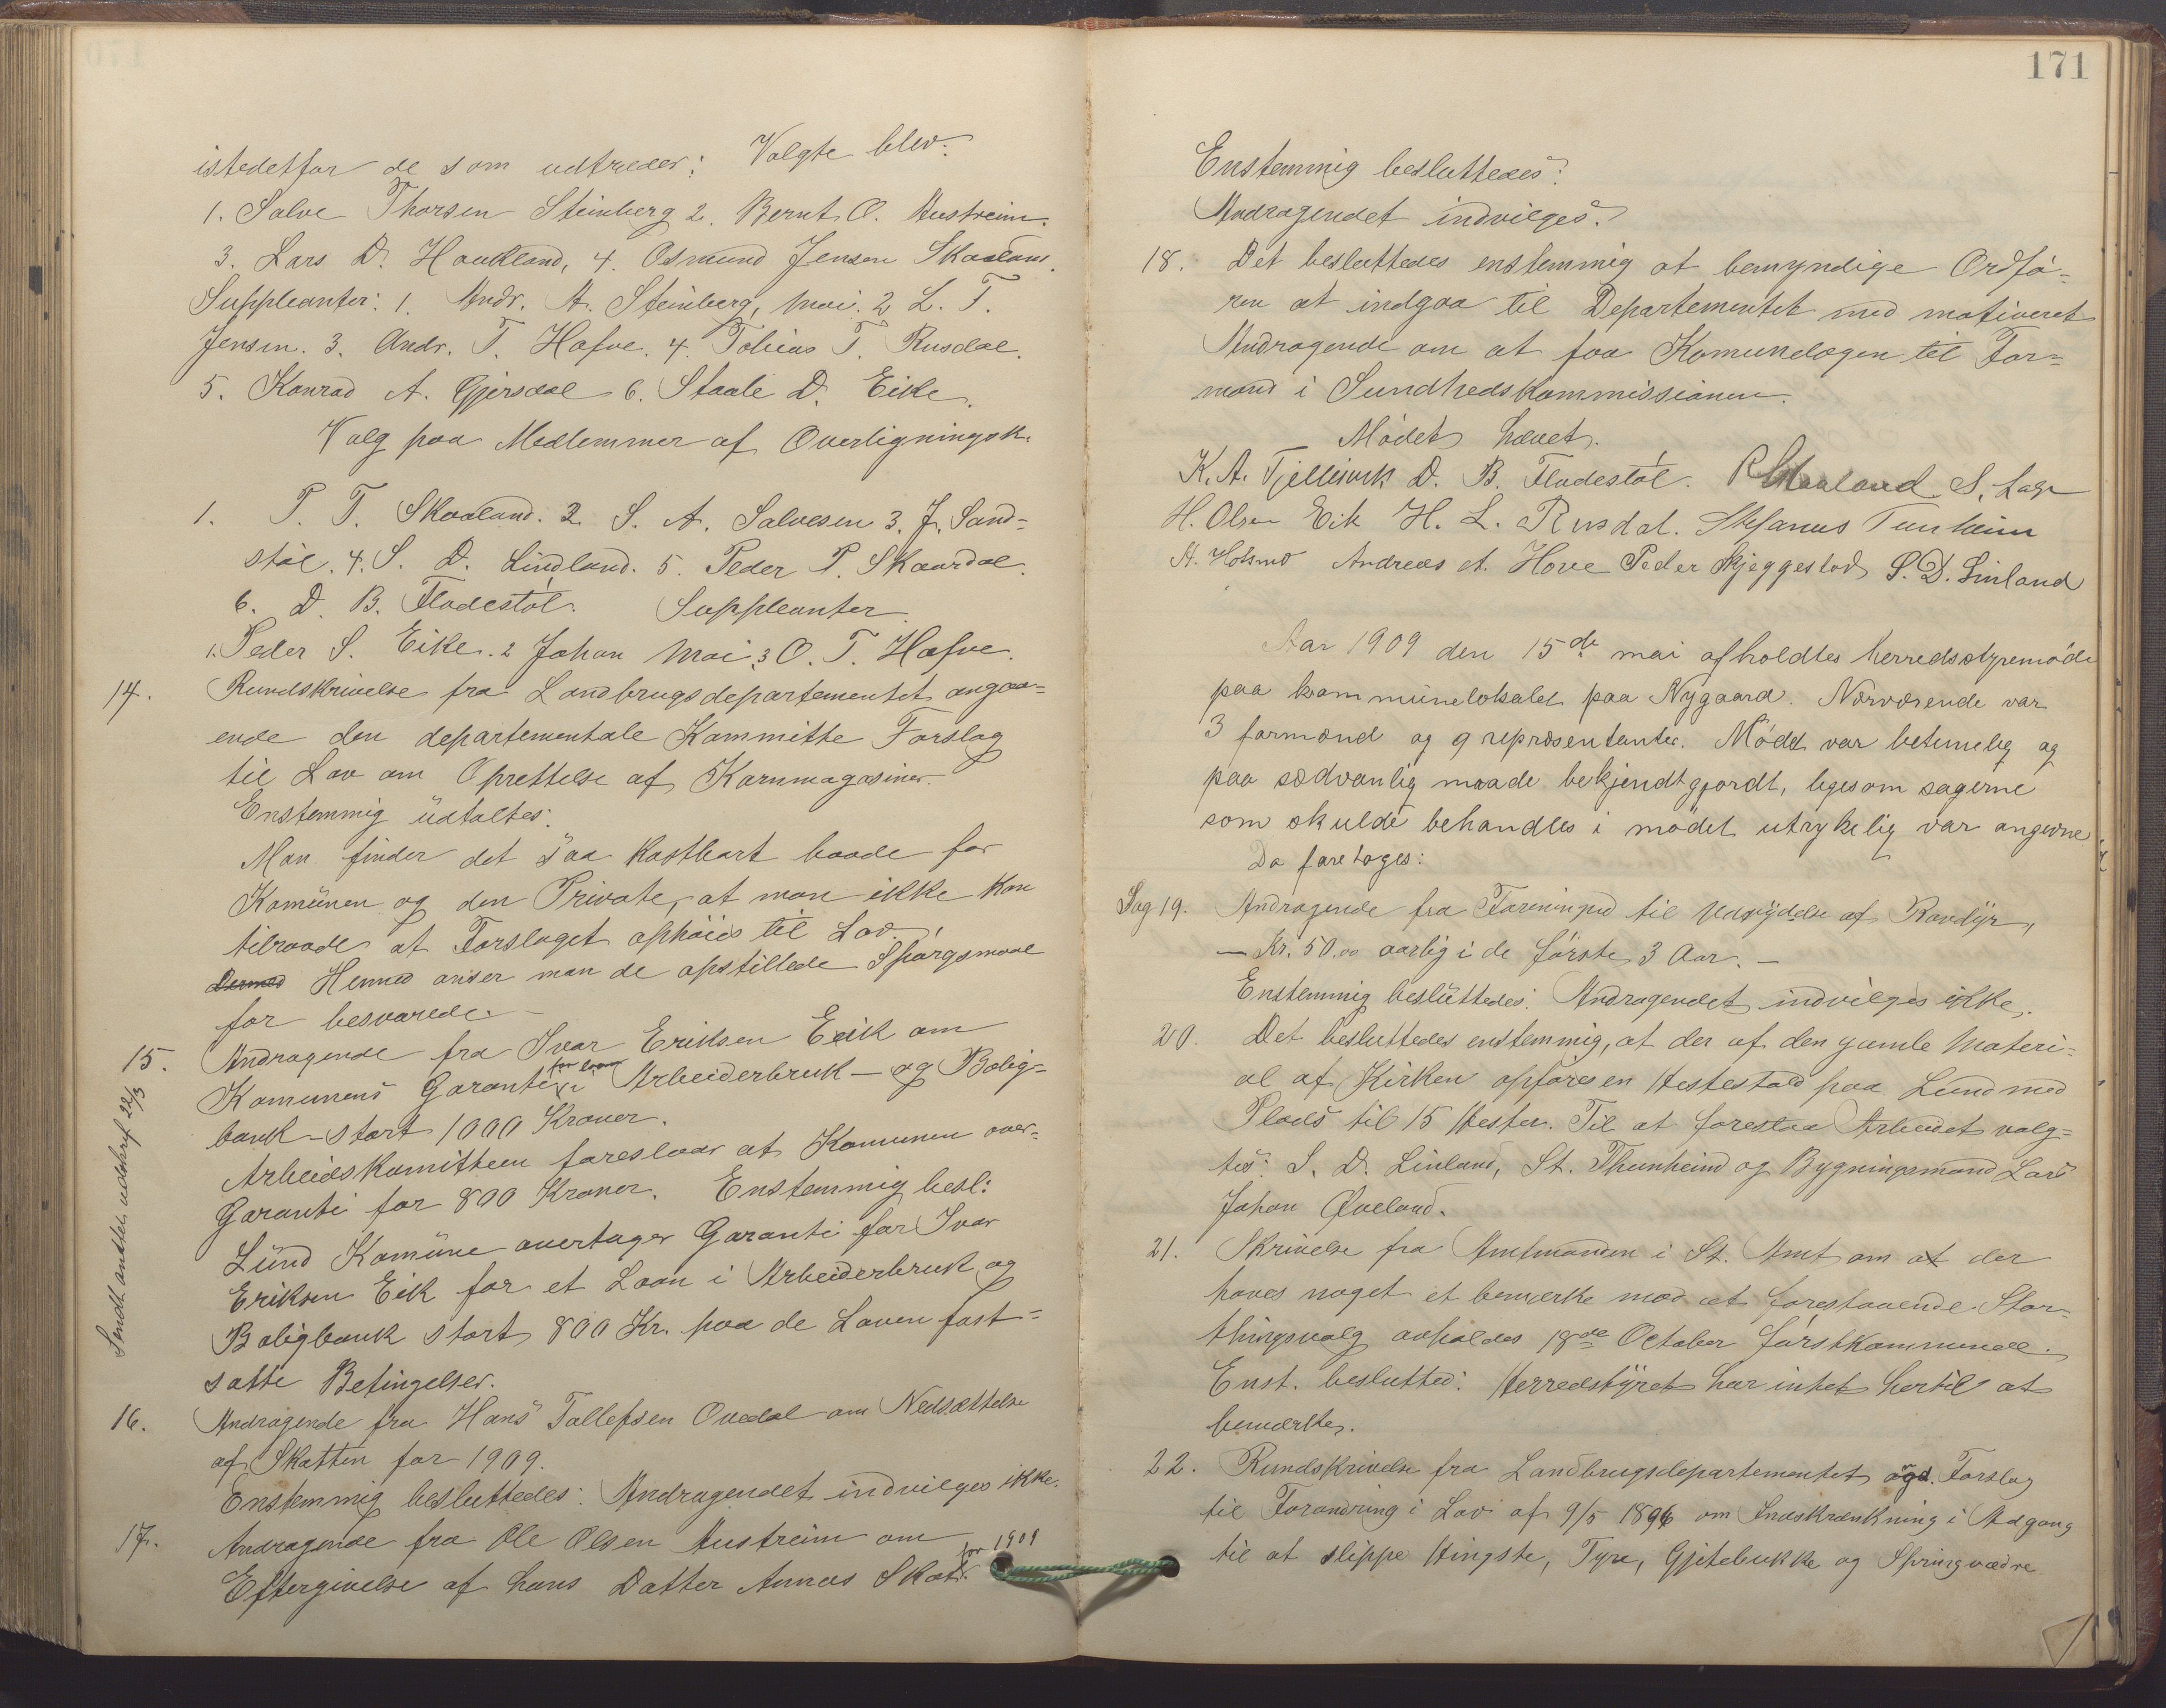 istedetfor de som udtræder: Valgte blev:
1. Salve Thorsen Steinberg 2. Bernt O. Austreim.
3. Lars D. Haukland, 4. Osmund Jensen Skaaland.
Suppleanter: 1. Andr. A. Steinberg, Moi. 2 L. T.
Jensen. 3. Andr. T. Hafve. 4. Tobias T. Rusdal.
5. Konrad A. Gjersdal 6. Staale D. Eike.
Valg paa Medlemmer af Overligningsk.
1. P. T. Skaaland. 2. S. A. Salvesen 3. J. Sand-
støl. 4. S. D. Lindland. 5. Peder P. Skaardal.
6. D. B. Fladestøl. Suppleanter
1. Peder S. Eike. 2 Johan Moi. 3 O. T. Hafve.
14. Rundskrivelse fra Landbrugsdepartementet angaa-
ende den departementale Kommitte Forslag
til Lov om Oprettelse af Kornmagasiner.
Enstemmig udtaltes:
Man finder det saa kostbart baade for
Komunen og den Private, at man ikke kan
tilraade at Forslaget ophøies til Lov.
Dermed Hermed anser man de opstillede Spørgsmaal
for besvarede.
15. Andragende fra Ivar Eriksen Eik om
Komunens Garanti for laan i Arbeiderbruk- og Bolig-
bank-stort 1000 Kroner.
Arbeidskomitteen foreslaar at Komunen over-
Garanti for 800 Kroner. Enstemmig besl:
Lund Komune overtager Garanti for Ivar
Eriksen Eik for et Laan i Arbeiderbruk og
Boligbank stort 800 Kr. paa de Loven fast-
satte Betingelser.
Sendt anditet udskrif 22/3
16. Andragende fra Hans Tollefsen Ovedal om Nedsættelse
af Skatten for 1909.
Enstemmig besluttedes: Andragendet indvilges ikke.
17. Andragende fra Ole Olsen Austreim om
Eftergivelse af hans Datter Annas Skat for 1909
171
Enstemmig besluttedes:
Andragendet indvilges.
18. Det besluttedes enstemmig at bemyndige Ordfø-
ren at indgaa til Departementet med motiveret
Andragende om at faa Komunelægen til For-
mand i Sundhedskommissionen.
Mødet hævet.
K. A. Fjellesvik D. B. Fladestøl. P Skaaland S. Lage
H. Olsen Eik H. L. Rusdal. Stefanus Tunheim
A. Holsmo Andreas A. Hove Peder Skjeggestad S. D. Linland
Aar 1909 den 15de mai afholdtes herredsstyremøde
paa kommunelokalet paa Nygaard. Nærværende var
3 formænd og 9 repræsentanter. Mødet var betimelig og
paa sædvanlig maade bekjendtgjordt, ligesom sagerne
som skulde behandles i mødet utrykelig var angivne
Da foretoges:
Sag 19. Andragende fra Foreningen til Udrydelse af Rovdyr,
— Kr. 50.00 aarlig i de første 3 Aar. —
Enstemmig besluttedes: Andragendet indvilges ikke.
20. Det besluttedes enstemmig, at der af den gamle Materi-
al af Kirken opføres en Hestestald paa Lund med
Plads til 15 Hester. Til at forestaa Arbeidet valg-
tes: S. D. Linland, St. Thunheim og Bygningsmand Lars
Johan Øveland.
21. Skrivelse fra Amtmanden i St. Amt om at der
haves noget at bemærke mod at forestaaende Stor-
thingsvalg avholdes 18de October førstkommende.
Enst. beslutted: Herredstyret har intet hertil at
bemærke.
22. Rundskrivelse fra Landbrugsdepartementet agd. Forslag
til Forandring i Lov af 9/5 1896 om Indskrænkning i Adgang
til at slippe Hingste, Tyre, Gjitebukke og Springvædre